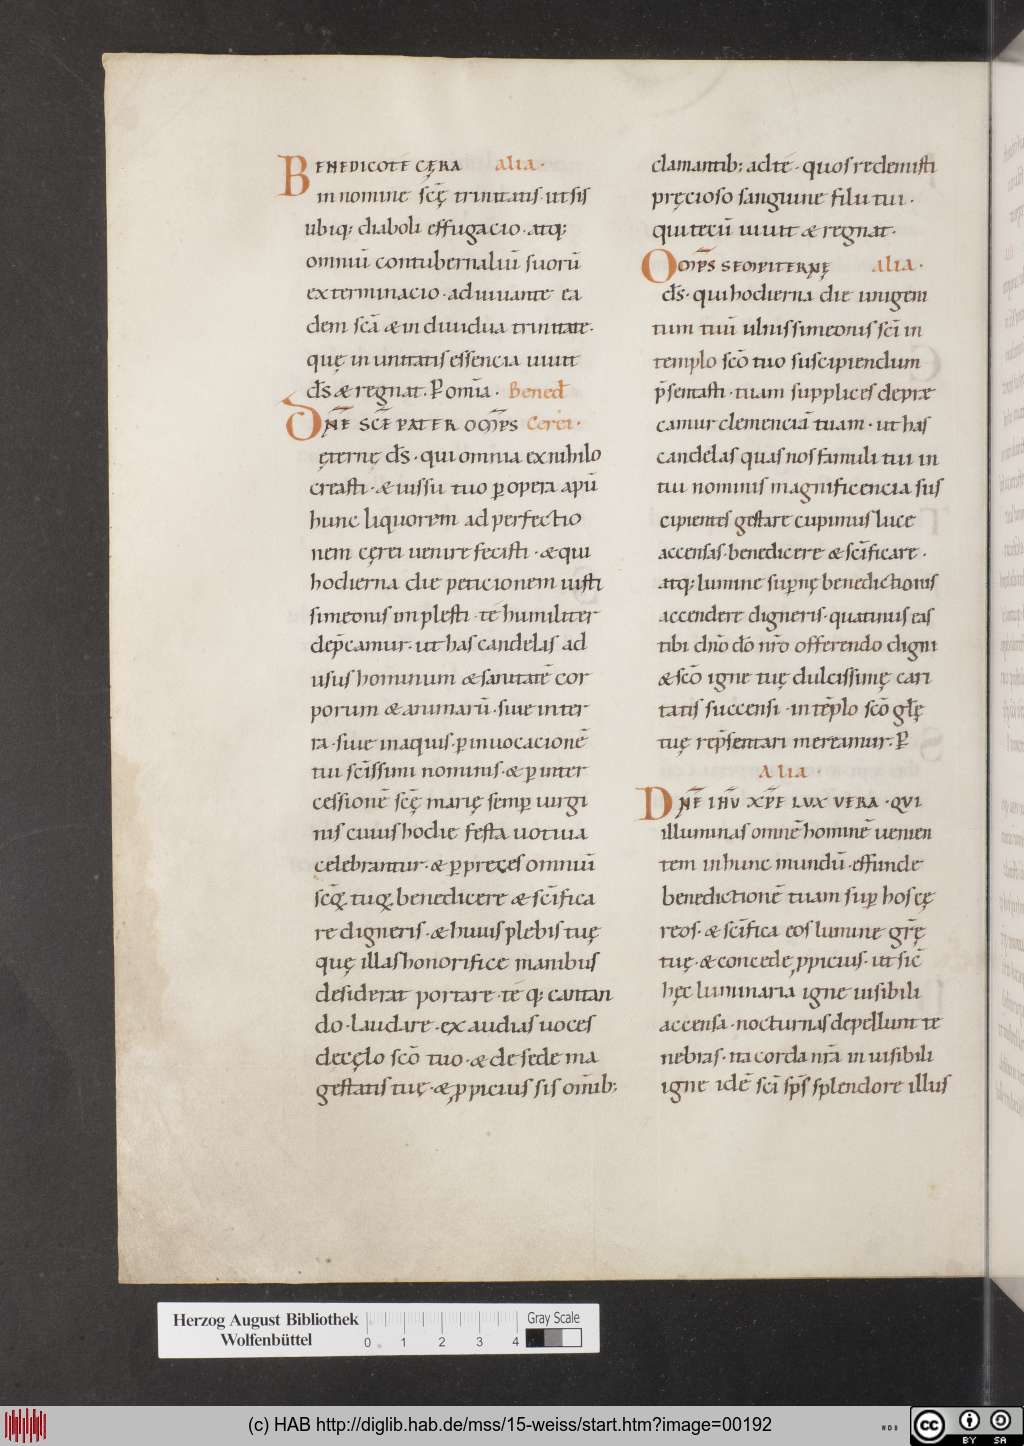 BENEDICO TE CĘRA alia·
in nomine scę̄ trinitatis· ut sis
ubiq; diaboli effugacio· atq;
omniū contubernaliū suorū
exterminacio· adiuuante ea
dem scā & indiuidua trinitate·
quę in unitatis essencia uiuit
ds̄ & regnat. P omīa· Bened̄
DNE SCE PATER OMPS Cerei·
ęternę ds̄· qui omnia ex nihilo
creasti· & iussu tuo ꝑ opera apū
hunc liquorem ad perfectio
nem cęrei uenire fecisti· & qui
hodierna die peticionem iusti
simeonis implesti· te humiliter
dep̄camur· ut has candelas ad
usus hominum & sanitatē cor
porum & animarū· siue in ter
ra· siue in aquis· ꝑ inuocacionē
tui scīssimi nominis· & ꝑ inter
cessionē scę̄ marię semꝑ uirgi
nis cuius hodie festa uotiua
celebrantur· & ꝑ preces omniū
scōꝝ tuoꝝ benedicere & scīfica
re digneris· & huius plebis tuę
quę illas honorifice manibus
desiderat portare· teq; cantan
do· laudare· exaudias uoces
de cęlo scō tuo· & de sede ma
gestatis tuę· & ꝓpicius sis omīb;
clamantib; ad te· quos redemisti
pręcioso sanguine filii tui·
qui tecū uiuit & regnat·
OMPS SEMPITERNĘ alia·
ds̄· qui hodierna die unigeni
tum tuū ulnis simeonis scī in
templo scō tuo suscipiendum
p̄sentasti· tuam supplices depræ
camur clemenciā tuam· ut has
candelas quas nos famuli tui in
tui nominis magnificencia sus
cipientes gestare cupimus luce
accensas· benedicere & scīficare·
atq; lumine suꝑnę benedictionis
accendere digneris· quatinus eas
tibi dn̄o dō nr̄o offerendo digni
& scō igne tuę dulcissimę cari
tatis succensi· in tēplo scō glę̄
tuę rep̄sentari mereamur. P
Alia·
DNE IHU XPE LUX VERA· QUI
illuminas omnē hominē uenien
tem in hunc mundū· effunde
benedictionē tuam suꝑ hos cę
reos· & scīfica eos lumine grę̄
tuę· & concede ꝓpicius· ut sic̄
hęc luminaria igne uisibili
accensa· nocturnas depellunt te
nebras· ita corda nr̄a inuisibili
igne idē scī sp̄s splendore illus
Herzog August Bibliothek
Wolfenbüttel
0 1 2 3 4
Gray Scale
(c) HAB http://diglib.hab.de/mss/15-weiss/start.htm?image=00192
WDB
CC BY SA